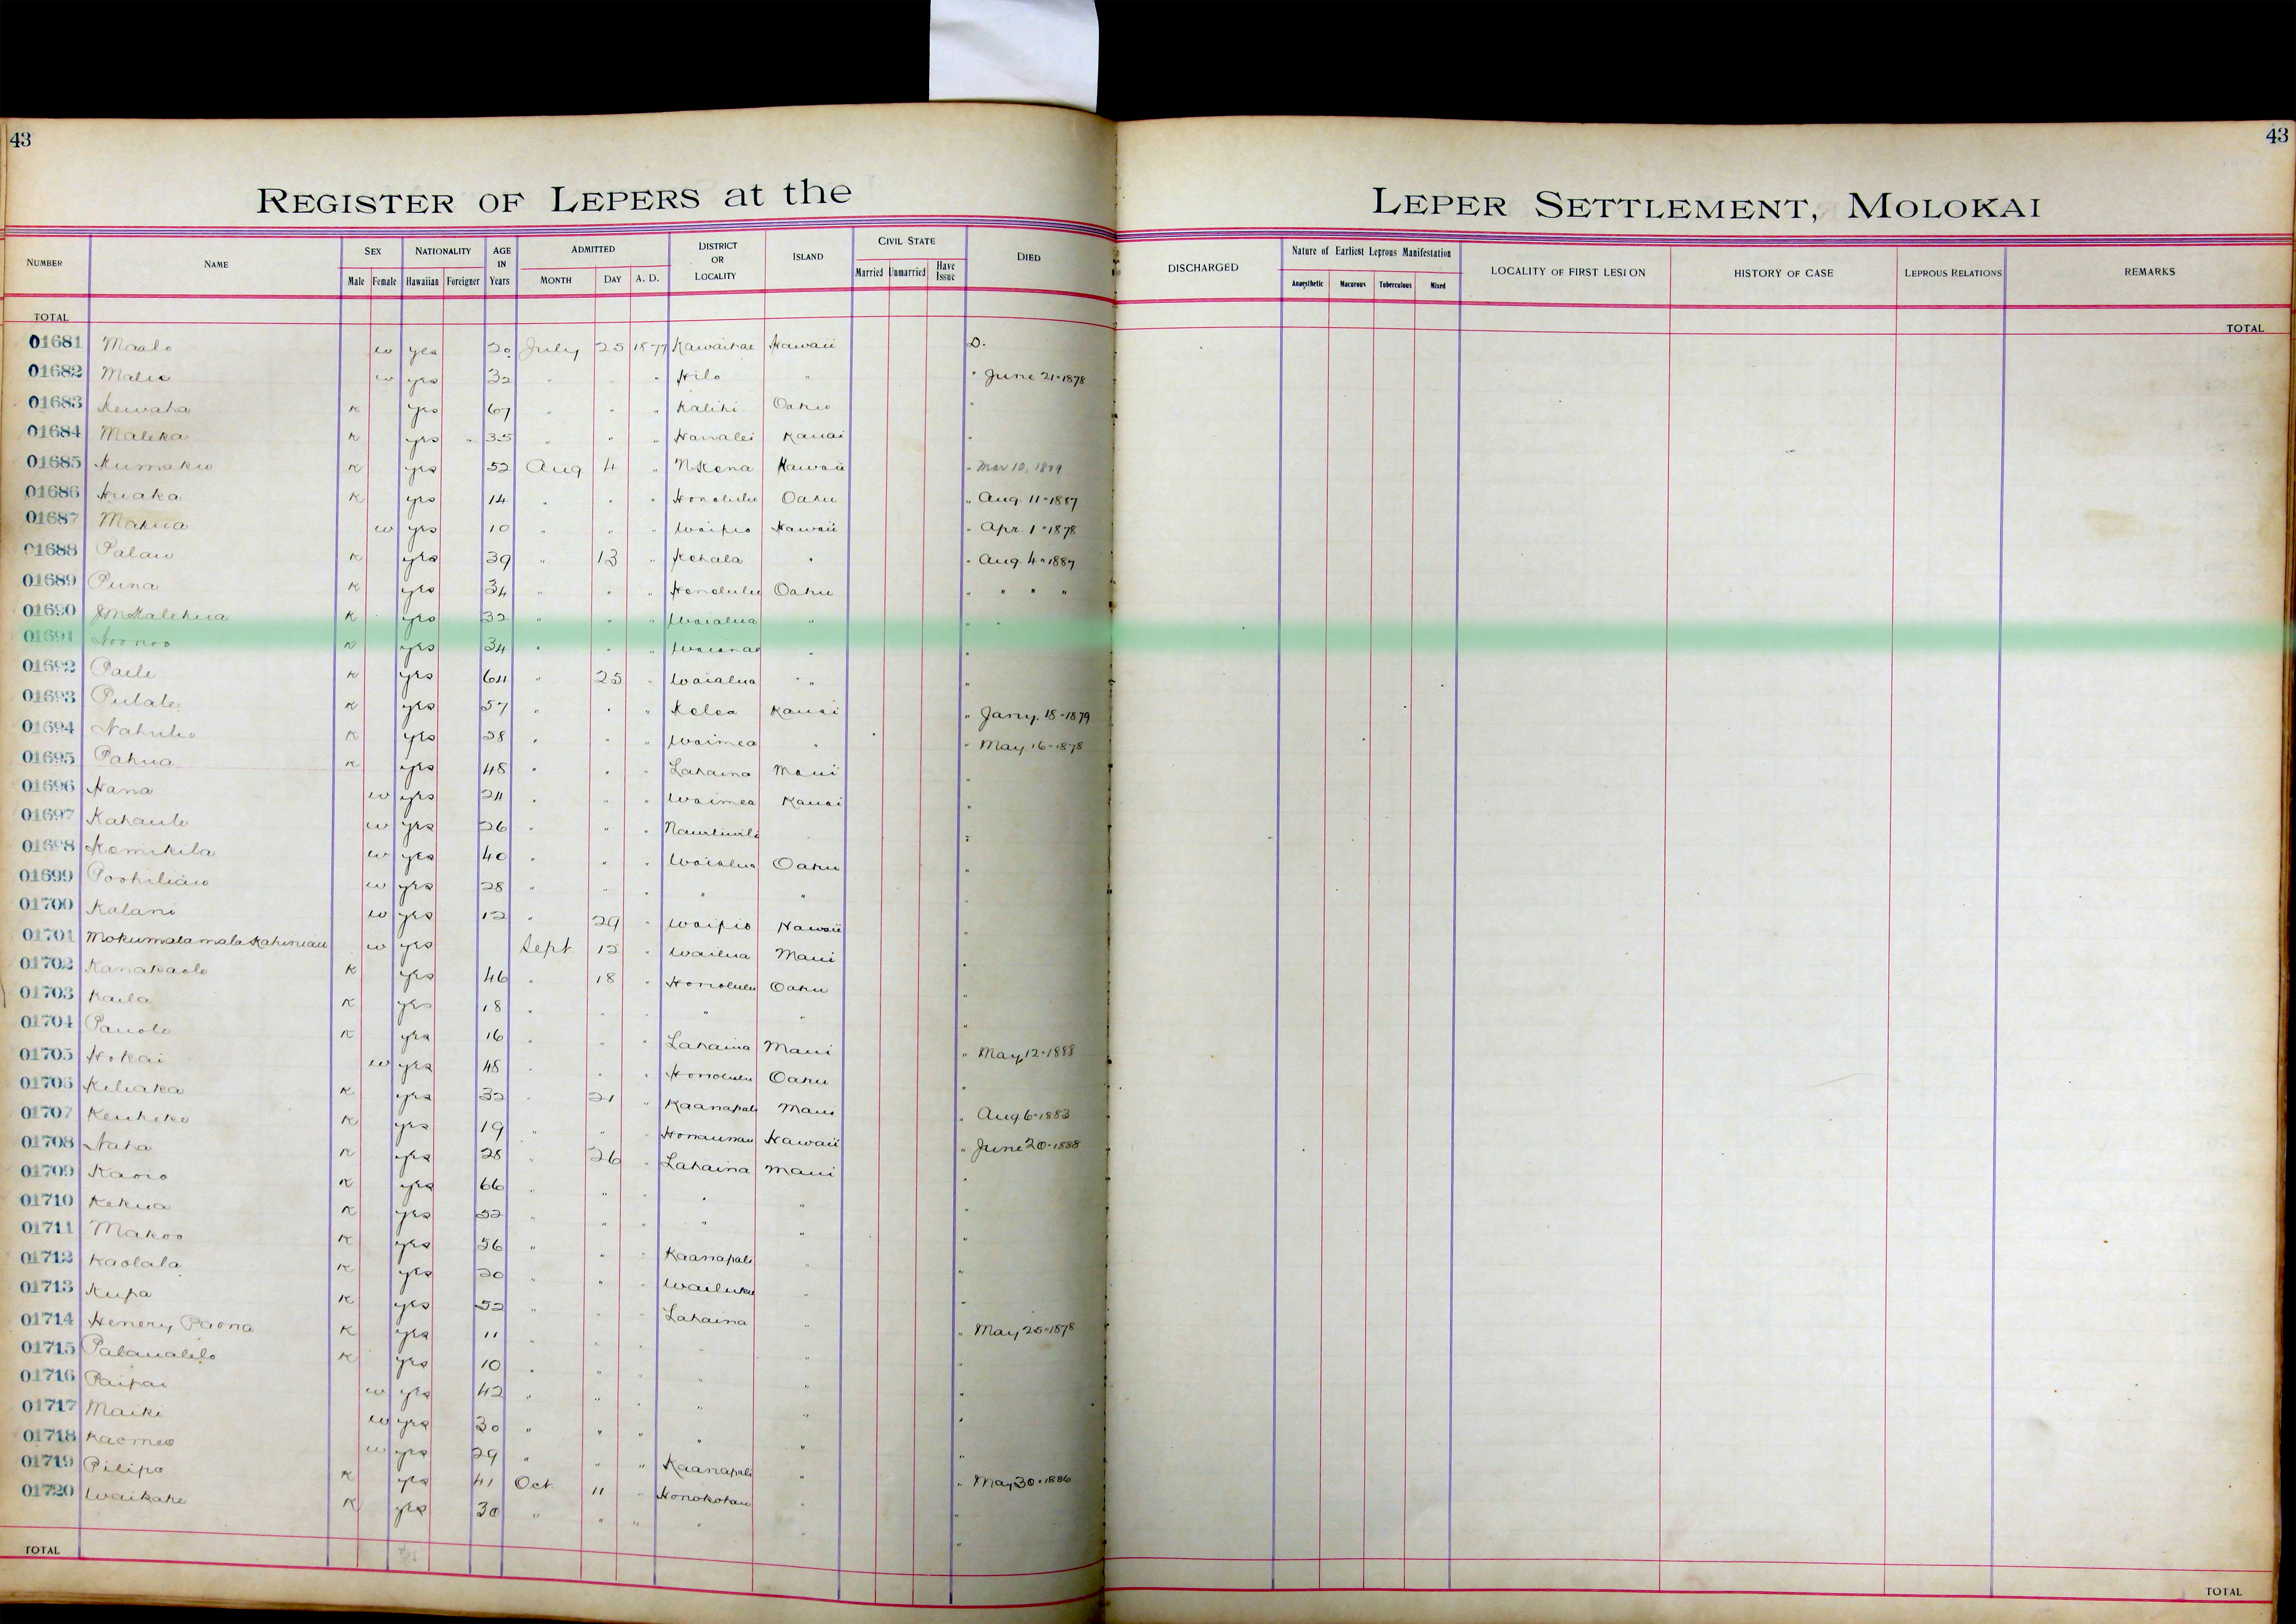 43
43
REGISTER OF LEPERS at the
LEPER SETTLEMENT, MOLOKAI
NUMBER NAME SEX NATIONALITY AGE IN Years ADMITTED DISTRICT OR LOCALITY ISLAND CIVIL STATE DIED
Male Female Hawaiian Foreigner MONTH DAY A. D. Married Unmarried Have Issue
DISCHARGED Nature of Earliest Leprous Manifestation LOCALITY OF FIRST LESION HISTORY OF CASE LEPROUS RELATIONS REMARKS
Anaesthetic Macurous Tuberculous Mixed
TOTAL
TOTAL
01681 Maalo w yes 20 July 25 1877 Kawaihae Hawaii D.
01682 Malie w yes 32 " " " Hilo " " June 21-1878
01683 Kewaha K yes 67 " " " Kalihi Oahu "
01684 Maleka K yes 35 " " " Hanalei Kauai "
01685 Kumaku K yes 52 Aug 4 " N Kona Hawaii " Mar 10, 1879
01686 Huaka K yes 14 " " " Honolulu Oahu " Aug. 11-1887
01687 Makua w yes 10 " " " Waipio Hawaii " Apr. 1-1878
01688 Palau K yes 39 " 13 " Kohala " " Aug. 4-1887
01689 Puna K yes 34 " " " Honolulu Oahu " " " "
01690 K yes 32 " " " Waialua " "
01691 Noonoo K yes 34 " " " Waianae " "
01692 Paele K yes 64 " 25 " Waialua " "
01693 Pulale K yes 57 " " " Kolea Kauai " Jany. 18-1879
01694 K yes 28 " " " Waimea " " May 16-1878
01695 Pahua K yes 48 " " " Lahaina Maui "
01696 Hana w yes 24 " " " Waimea Kauai "
01697 Kahaule w yes 26 " " " "
01698 Kamikila w yes 40 " " " Waialua Oahu "
01699 Poohiliau w yes 28 " " " " "
01700 Kalani w yes 12 " 29 " Waipio Hawaii "
01701 Mokumalamala Kahiniau w yes Sept. 12 " Wailua Maui "
01702 Kanakaole K yes 46 " 18 " Honolulu Oahu "
01703 Kaila K yes 18 " " " " " "
01704 Pauole K yes 16 " " " Lahaina Maui " May 12-1888
01705 Hokai w yes 48 " " " Honolulu Oahu "
01706 Keliaka K yes 32 " 21 " Kaanapali Maui " Aug 6-1883
01707 Keuheke K yes 19 " " " Honaunau Hawaii " June 20-1888
01708 Naha K yes 28 " 26 " Lahaina Maui "
01709 K yes 66 " " " " " "
01710 Kekua K yes 52 " " " " " "
01711 Makoo K yes 56 " " " Kaanapali " "
01712 Kaolala K yes 20 " " " Wailuku " "
01713 Kupa K yes 52 " " " Lahaina " "
01714 Henery Paona K yes 11 " " " " " " May 25-1878
01715 Palaualelo K yes 10 " " " " " "
01716 Paipai w yes 42 " " " " " "
01717 Maiki w yes 30 " " " " " "
01718 Kaomeo w yes 29 " " " Kaanapali " "
01719 Pilipo K yes 41 Oct 11 " Honokohau " " May 30-1886
01720 Waikahe K yes 30 " " " " " "
TOTAL
TOTAL